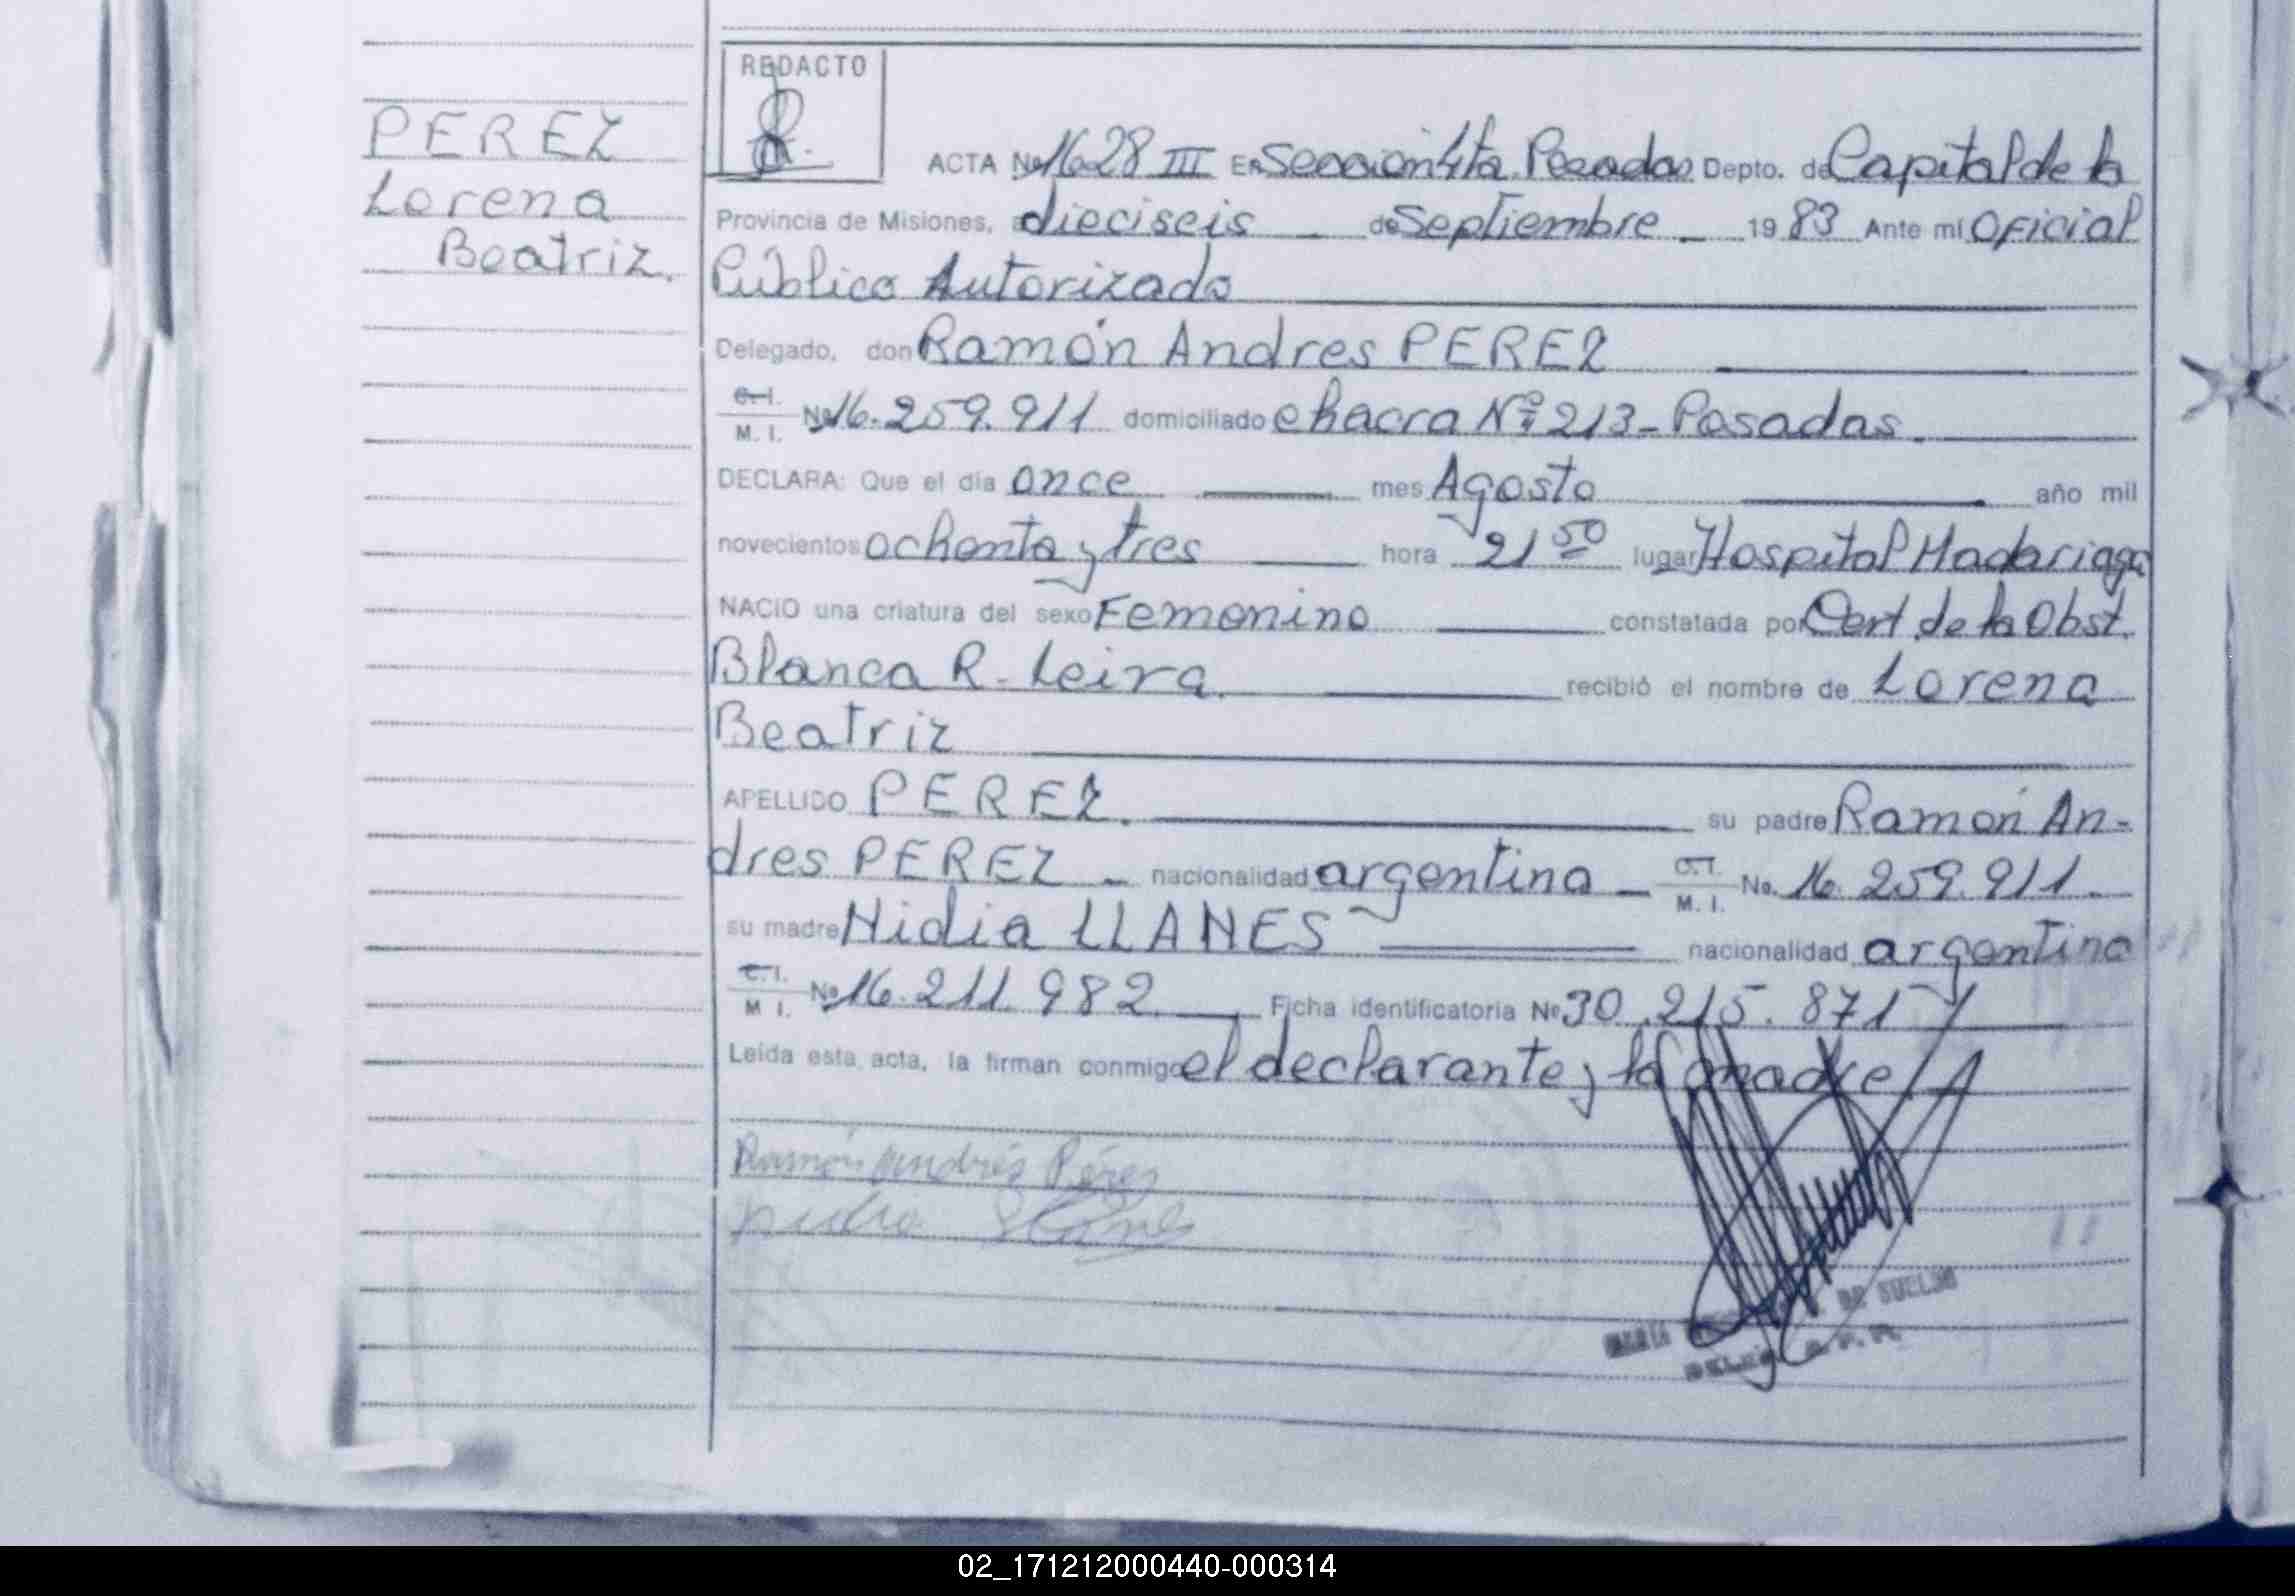 REDACTO
PEREZ
Lorena
Beatriz.
ACTA No 1628 III En Sección 4ta. Posadas Depto. de Capital de la
Provincia de Misiones, a dieciseis de Septiembre 19 83 Ante mí Oficial
Público Autorizado
Delegado, don Ramón Andres PEREZ
C. I. / M. I. No 16.259.911 domiciliado chacra Nº 213 - Posadas.
DECLARA: Que el día once mes Agosto año mil
novecientos ochenta y tres hora 21 50 lugar Hospital Madariaga
NACIO una criatura del sexo Femenino constatada por Cert. de la Obst.
Blanca R. Leiva. recibió el nombre de Lorena
Beatriz
APELLIDO PEREZ. su padre Ramón An-
dres PEREZ - nacionalidad argentina - C. I. / M. I. No. 16.259.911.
su madre Nidia LLANES nacionalidad argentina
C. I. / M I. No 16.211.982. Ficha identificatoria No 30.215.871
Leída esta acta, la firman conmigo el declarante y la madre
Ramón Andrés Pérez
Nidia Llanes
DE SUELDO
02_171212000440-000314